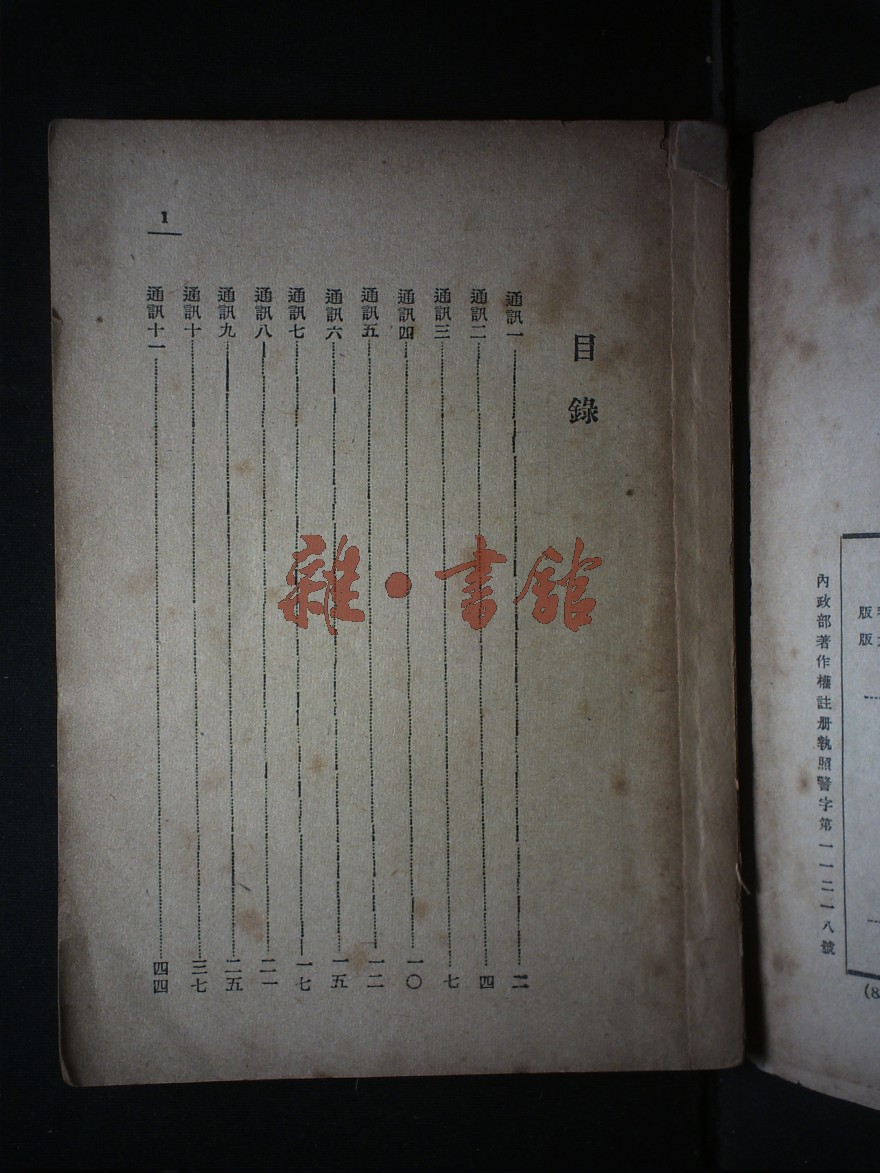 目錄
通訊一……二
通訊二……四
通訊三……七
通訊四……一〇
通訊五……一二
通訊六……一五
通訊七……一七
通訊八……二一
通訊九……二五
通訊十……三七
通訊十一……四四
1
雜·書館
版
版
內政部著作權註册執照警字第一一二一八號
(8